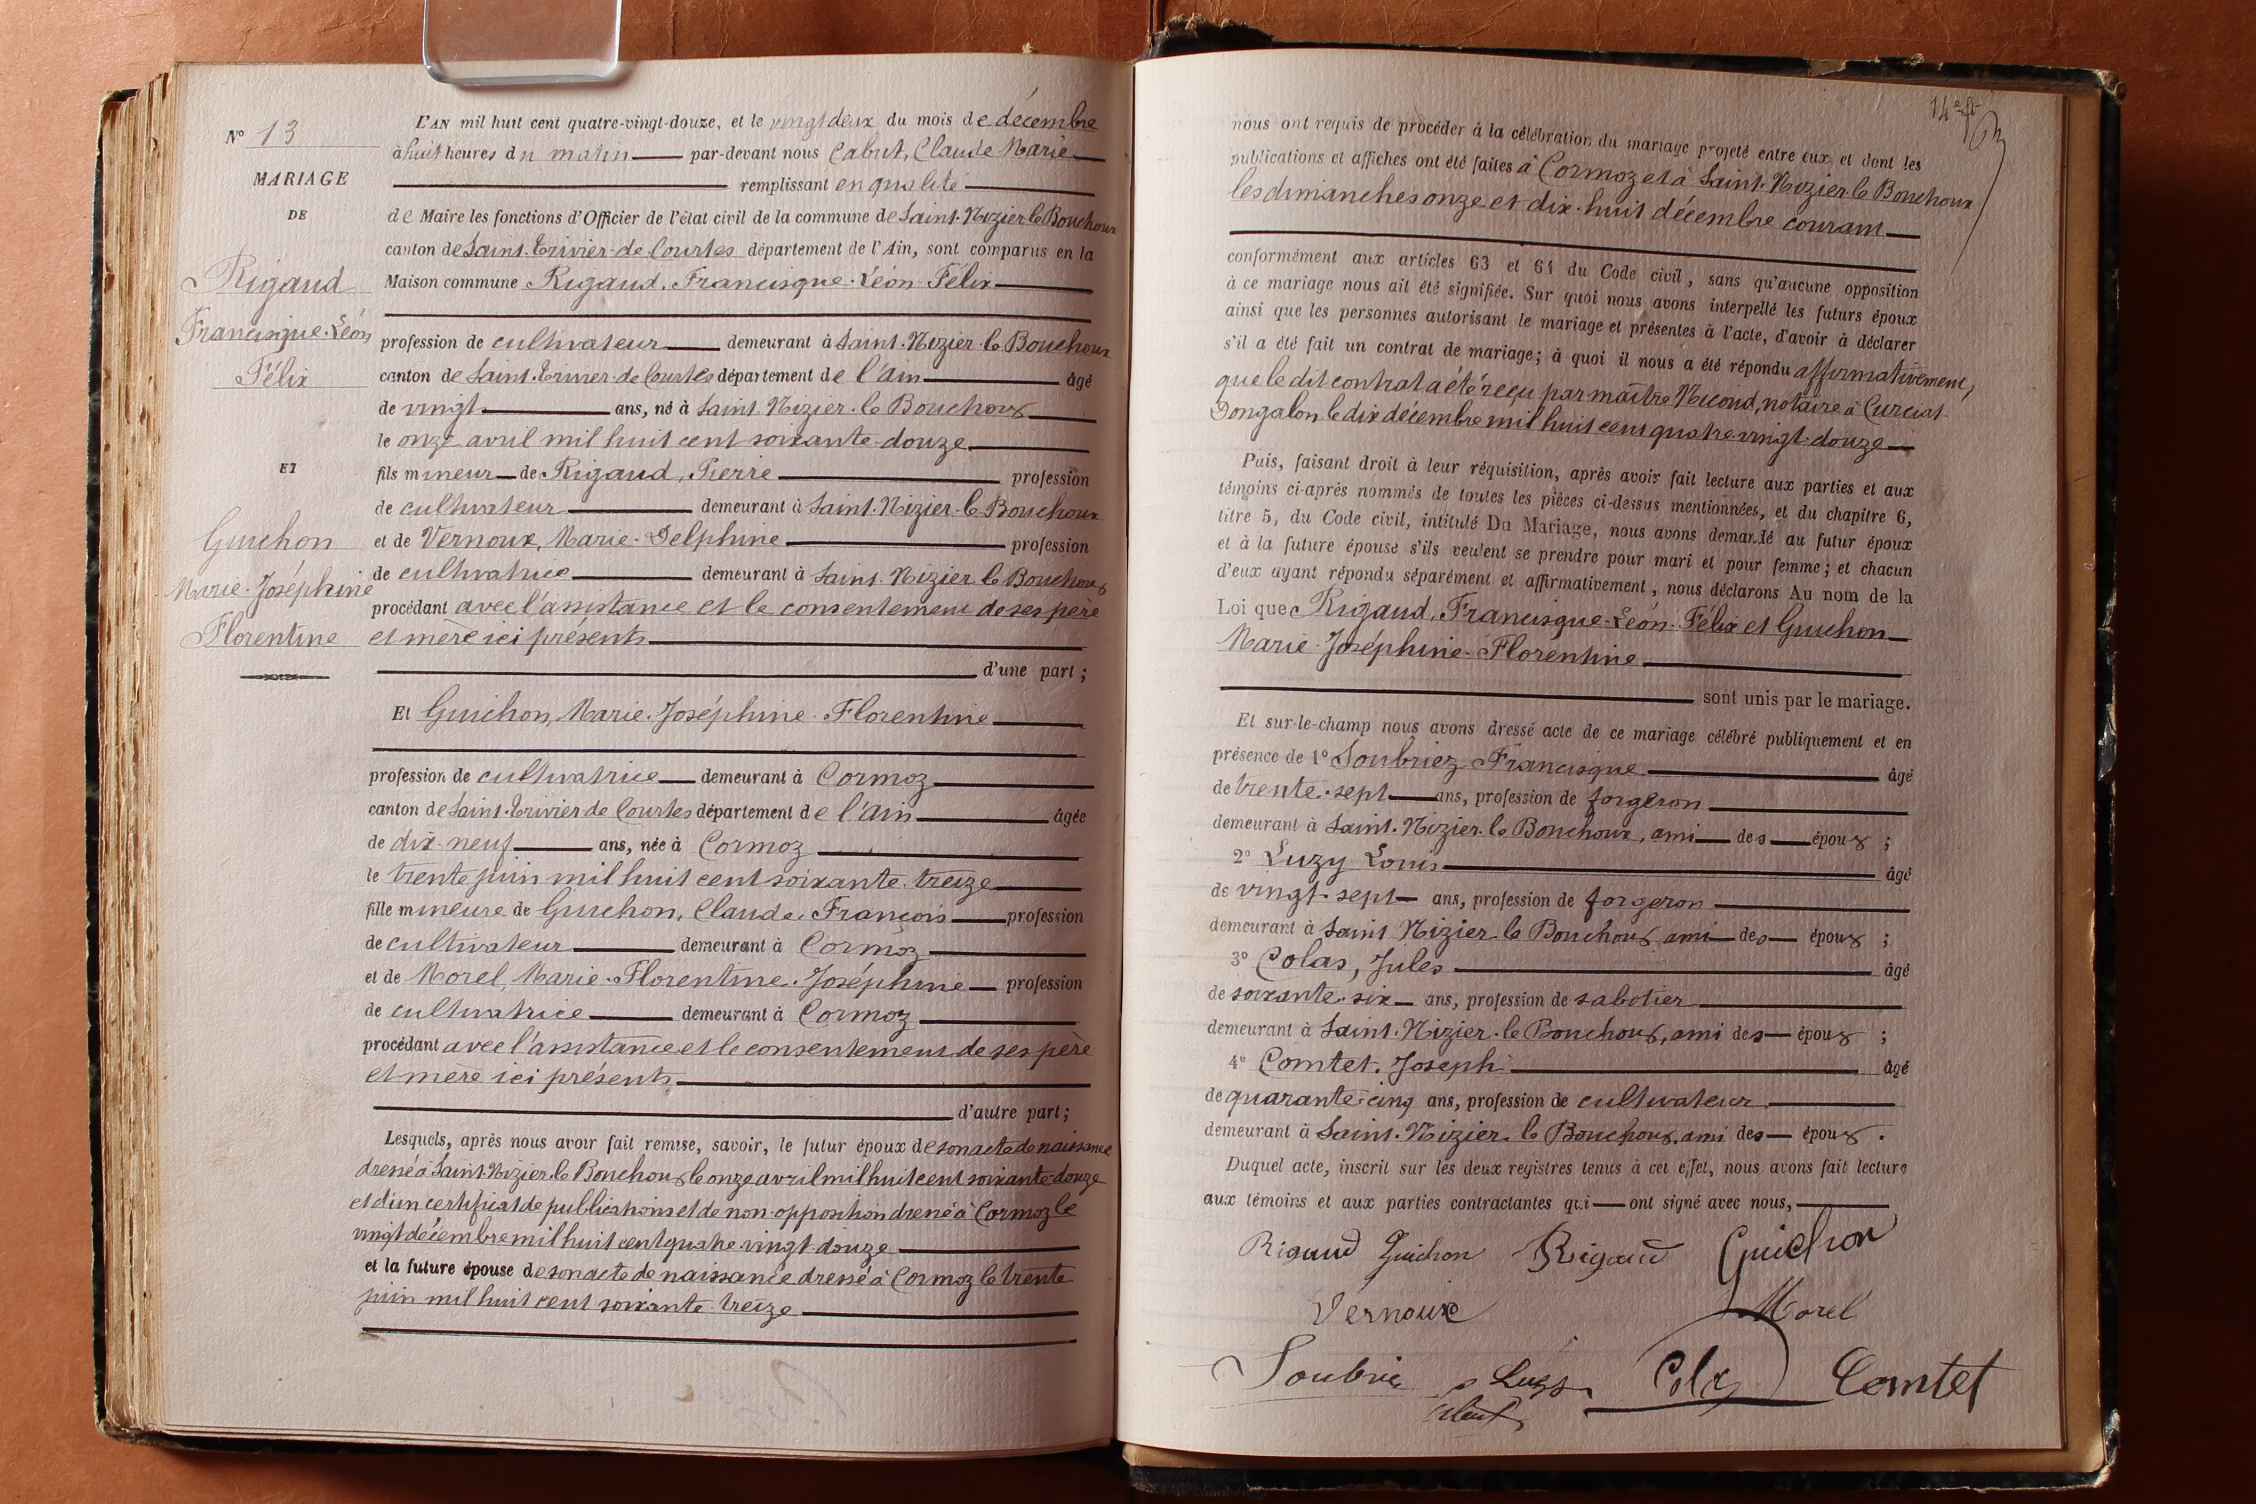 N° 13
MARIAGE
DE
Rigaud
Francisque-Léon
Félix
ET
Guichon
Marie-Joséphine
Florentine
L'AN mil huit cent quatre-vingt-douze, et le vingt deux du mois de décembre
à huit heures du matin par-devant nous Cabut, Claude Marie
remplissant en qualité
de Maire les fonctions d'Officier de l'état civil de la commune de Saint-Nizier-le Bouchoux
canton de Saint-Trivier-de Courtes département de l'Ain, sont comparus en la
Maison commune Rigaud, Francisque-Léon-Félix
profession de cultivateur demeurant à Saint-Nizier-le Bouchoux
canton de Saint-Trivier-de Courtes département de l'Ain âgé
de vingt ans, né à Saint Nizier-le Bouchoux
le onze avril mil huit cent soixante-douze
fils mineur de Rigaud, Pierre profession
de cultivateur demeurant à Saint-Nizier-le Bouchoux
et de Vernoux, Marie-Delphine profession
de cultivatrice demeurant à Saint-Nizier le Bouchoux
procédant avec l'assistance et le consentement de ses père
et mère ici présents
d'une part ;
Et Guichon, Marie-Joséphine-Florentine
profession de cultivatrice demeurant à Cormoz
canton de Saint-Trivier de Courtes département de l'Ain âgée
de dix-neuf ans, née à Cormoz
le trente juin mil huit cent soixante-treize
fille mineure de Guichon, Claude-François profession
de cultivateur demeurant à Cormoz
et de Morel, Marie-Florentine-Joséphine profession
de cultivatrice demeurant à Cormoz
procédant avec l'assistance et le consentement de ses père
et mère ici présents
d'autre part ;
Lesquels, après nous avoir fait remise, savoir, le futur époux de son acte de naissance
dressé à Saint-Nizier-le Bouchoux le onze avril mil huit cent soixante-douze
et d'un certificat de publications et de non-opposition dressé à Cormoz le
vingt décembre mil huit cent quatre-vingt-douze
et la future épouse de son acte de naissance dressé à Cormoz le trente
juin mil huit cent soixante-treize
nous ont requis de procéder à la célébration du mariage projeté entre eux, et dont les
publications et affiches ont été faites à Cormoz et à Saint-Nizier le Bouchoux
les dimanches onze et dix-huit décembre courant
conformément aux articles 63 et 64 du Code civil, sans qu'aucune opposition
à ce mariage nous ait été signifiée. Sur quoi nous avons interpellé les futurs époux
ainsi que les personnes autorisant le mariage et présentes à l'acte, d'avoir à déclarer
s'il a été fait un contrat de mariage ; à quoi il nous a été répondu affirmativement,
que le dit contrat a été reçu par maître notaire à Curciat
Dongalon le dix décembre mil huit cent quatre-vingt-douze
Puis, faisant droit à leur réquisition, après avoir fait lecture aux parties et aux
témoins ci-après nommés de toutes les pièces ci-dessus mentionnées, et du chapitre 6,
titre 5, du Code civil, intitulé Du Mariage, nous avons demandé au futur époux
et à la future épouse s'ils veulent se prendre pour mari et pour femme ; et chacun
d'eux ayant répondu séparément et affirmativement, nous déclarons Au nom de la
Loi que Rigaud, Francisque-Léon-Félix et Guichon
Marie-Joséphine-Florentine
sont unis par le mariage.
Et sur-le-champ nous avons dressé acte de ce mariage célébré publiquement et en
présence de 1° Soubriez Francisque âgé
de trente-sept ans, profession de forgeron
demeurant à Saint-Nizier-le Bouchoux, ami des époux ;
2° Luzy Louis âgé
de vingt-sept ans, profession de forgeron
demeurant à Saint Nizier-le Bouchoux, ami des époux ;
3° Colas, Jules âgé
de soixante-six ans, profession de sabotier
demeurant à Saint-Nizier-le Bouchoux, ami des époux ;
4° Comtet, Joseph âgé
de quarante-cinq ans, profession de cultivateur
demeurant à Saint-Nizier-le Bouchoux, ami des époux.
Duquel acte, inscrit sur les deux registres tenus à cet effet, nous avons fait lecture
aux témoins et aux parties contractantes qui ont signé avec nous,
Rigaud Guichon Rigaud Guichon
Vernoux Morel
Soubrie Luzy Colas Comtet
Cabut